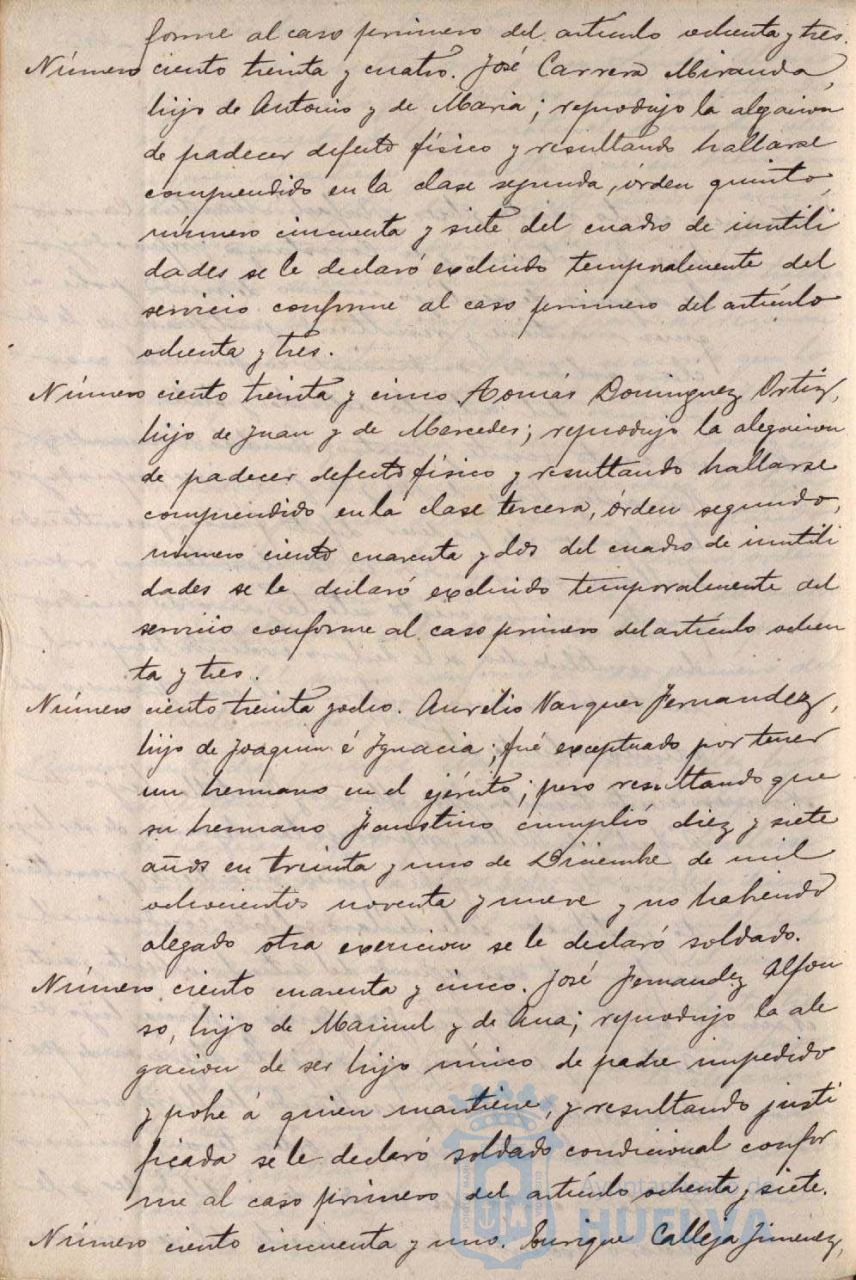 forme al caso primero del artículo ochenta y tres.
Número ciento treinta y cuatro. José Carrera Miranda,
hijo de Antonio y de Maria; reprodujo la alegacion
de padecer defecto físico y resultando hallarse
comprendido en la clase segunda, órden quinto,
número cincuenta y siete del cuadro de inutili
dades se le declaró excluido temporalmente del
servicio conforme al caso primero del artículo
ochenta y tres.
Número ciento treinta y cinco Tomás Dominguez Ortiz,
hijo de Juan y de Mercedes; reprodujo la alegacion
de padecer defecto físico y resultando hallarse
comprendido en la clase tercera, órden segundo,
número ciento cuarenta y dos del cuadro de inutili
dades se le declaró excluido temporalmente del
servicio conforme al caso primero del artículo ochen
ta y tres.
Número ciento treinta y ocho. Aurelio Vazquez Fernandez,
hijo de Joaquin é Ignacia; fué exceptuado por tener
un hermano en el ejército; pero resultando que
su hermano Faustino cumplió diez y siete
años en treinta y uno de Diciembre de mil
ochocientos noventa y nueve y no habiendo
alegado otra exencion se le declaró soldado.
Número ciento cuarenta y cinco. José Fernandez Alfon
so, hijo de Manuel y de Ana; reprodujo la ale
gacion de ser hijo único de padre impedido
y pobre á quien mantiene, y resultando justi
ficada se le declaró soldado condicional confor
me al caso primero del artículo ochenta y siete.
Número ciento cincuenta y uno. Enrique Calleja Jimenez,
Ayuntamiento de
HUELVA